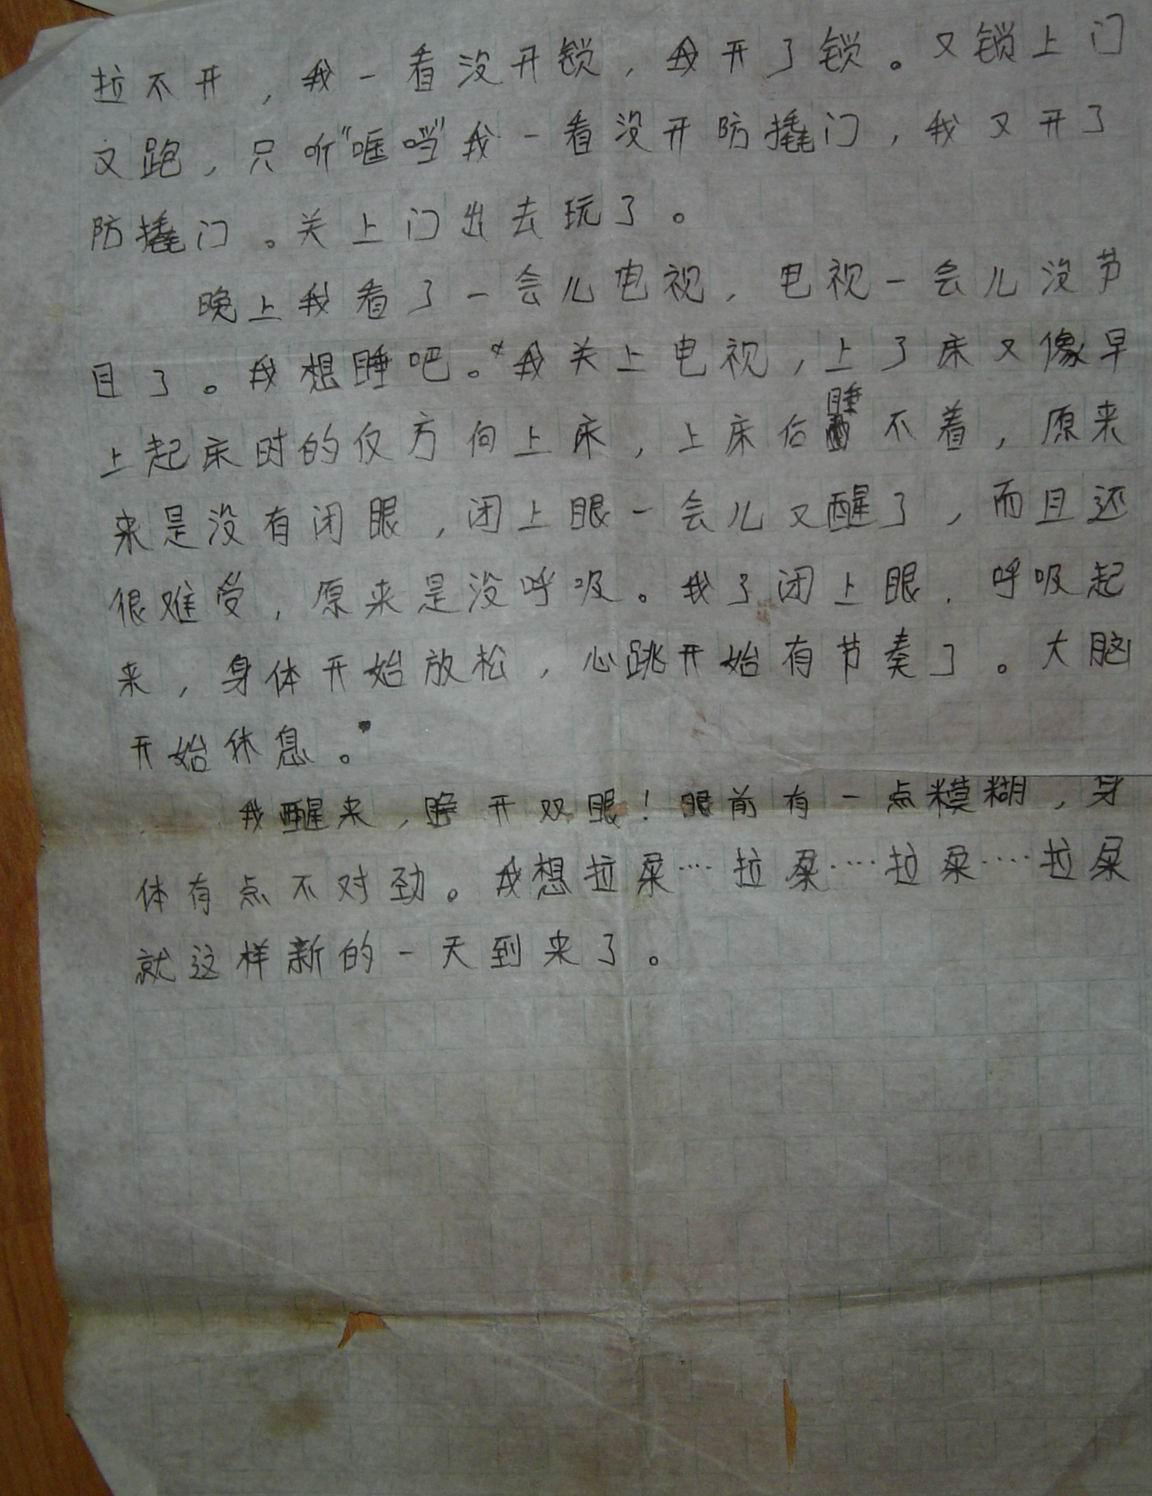 拉不开，我一看没开锁，我开了锁。又锁上门
又跑，只听"哐当"我一看没开防撬门，我又开了
防撬门。关上门出去玩了。
晚上我看了一会儿电视，电视一会儿没节
目了。我想睡吧。"我关上电视，上了床又像早
上起床时的仅方向上床，上床后睡不着，原来
来是没有闭眼，闭上眼一会儿又醒了，而且还
很难受，原来是没呼吸。我了闭上眼．呼吸起
来，身体开始放松，心跳开始有节奏了。大脑
开始休息。"
我醒来，睁开双眼！眼前有一点糢糊，身
体有点不对劲。我想拉屎…拉屎…拉屎…拉屎
就这样新的一天到来了。